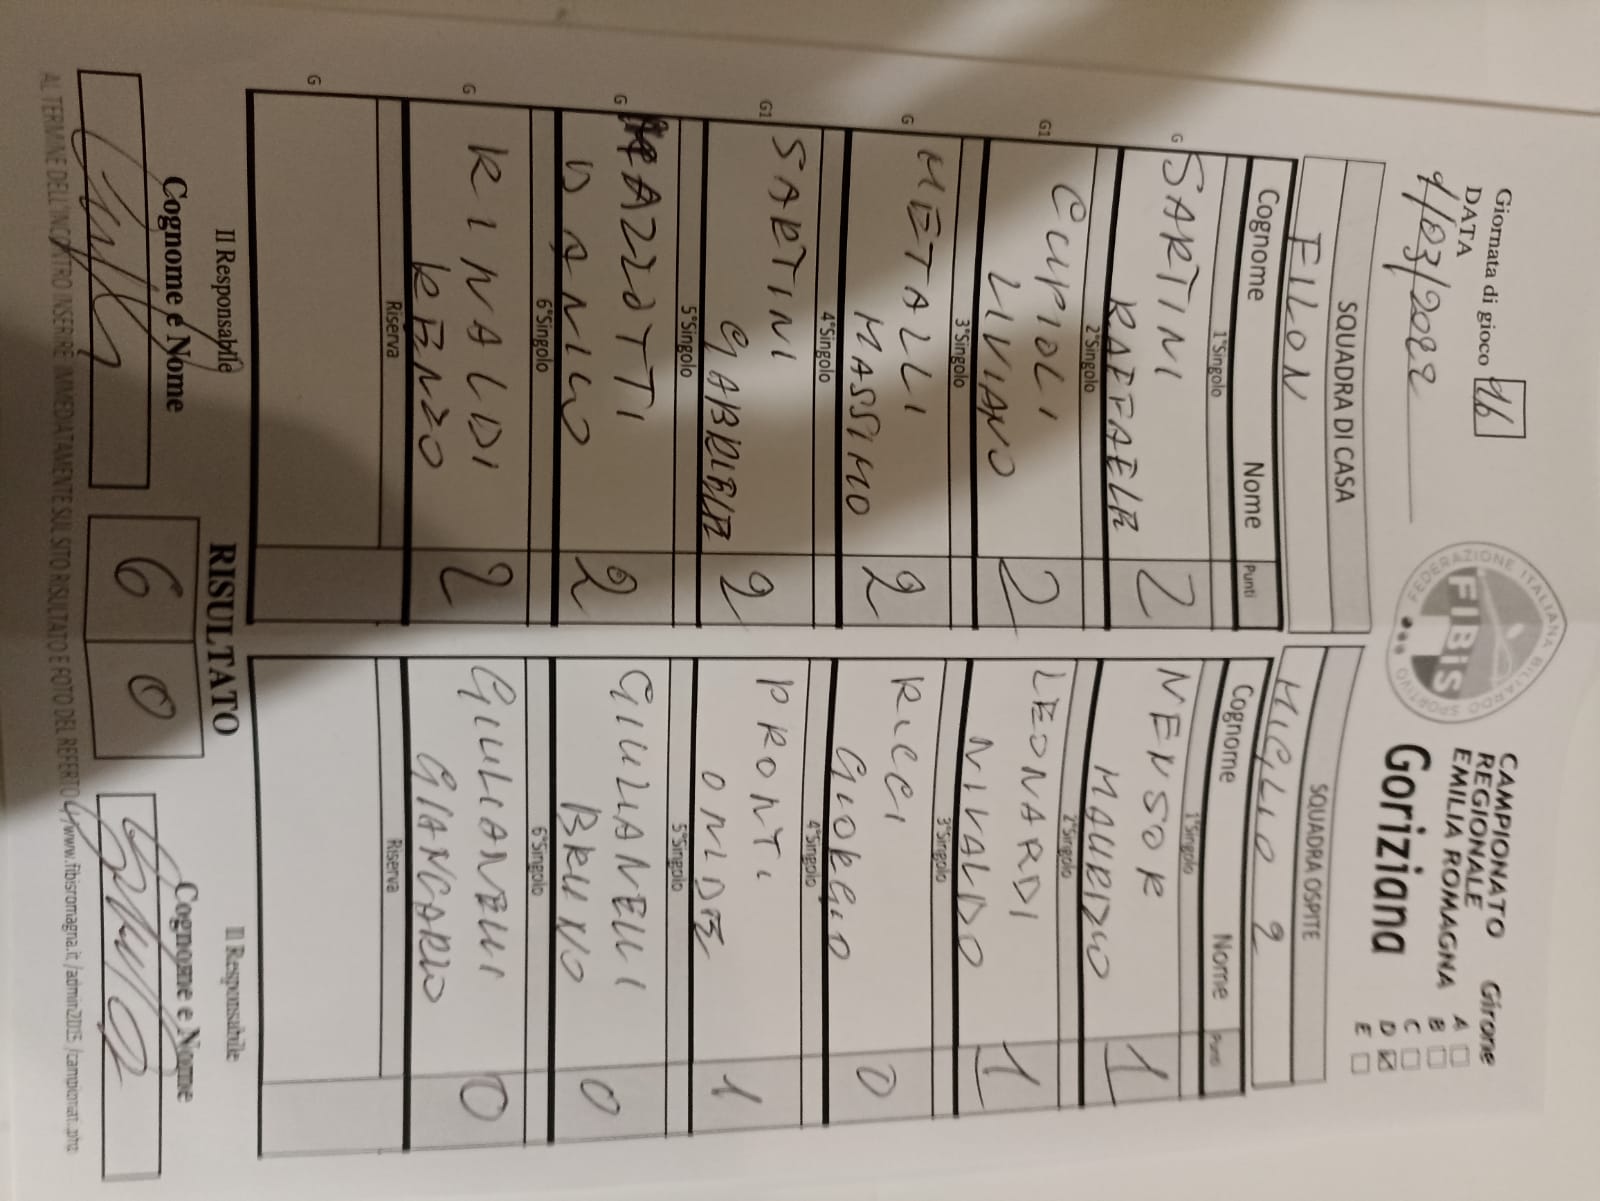 Giornata di gioco 16
DATA
1/03/2022
FEDERAZIONE ITALIANA BILIARDO SPORTIVO
FIBiS
CAMPIONATO
REGIONALE
EMILIA ROMAGNA
Gorizana
Girone
A
B
C
D
E
SQUADRA DI CASA
FILON
Cognome Nome Punti
G
1°Singolo
SARTINI
RAFFAELE 2
G1
2°Singolo
CUPIOLI
LIVIANO 2
G
3°Singolo
METALLI
MASSIMO 2
G1
4°Singolo
SARTINI
GABRIELE 2
G
5°Singolo
MAZZOTTI
DANILO 2
G
6°Singolo
RINALDI
RENZO 2
G
Riserva
SQUADRA OSPITE
MIGLIO 2
Cognome Nome Punti
1°Singolo
NENSOR
MAURIZIO 1
2°Singolo
LEONARDI
NIVALDO 1
3°Singolo
RICCI
GIORGIO 0
4°Singolo
PRONTI
ONLIDE 1
5°Singolo
GIULIANELLI
BRUNO 0
6°Singolo
GIULIANELLI
GIANCARLO 0
Riserva
RISULTATO
6 0
Il Responsabile
Cognome e Nome
Il Responsabile
Cognome e Nome
AL TERMINE DELL'INCONTRO INSERIRE IMMEDIATAMENTE SUL SITO RISULTATO E FOTO DEL REFERTO